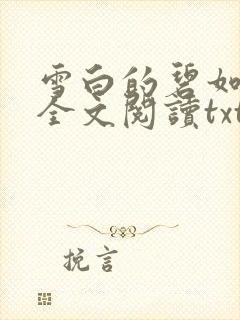 雪白的碧如
全文閱讀txt
挽言